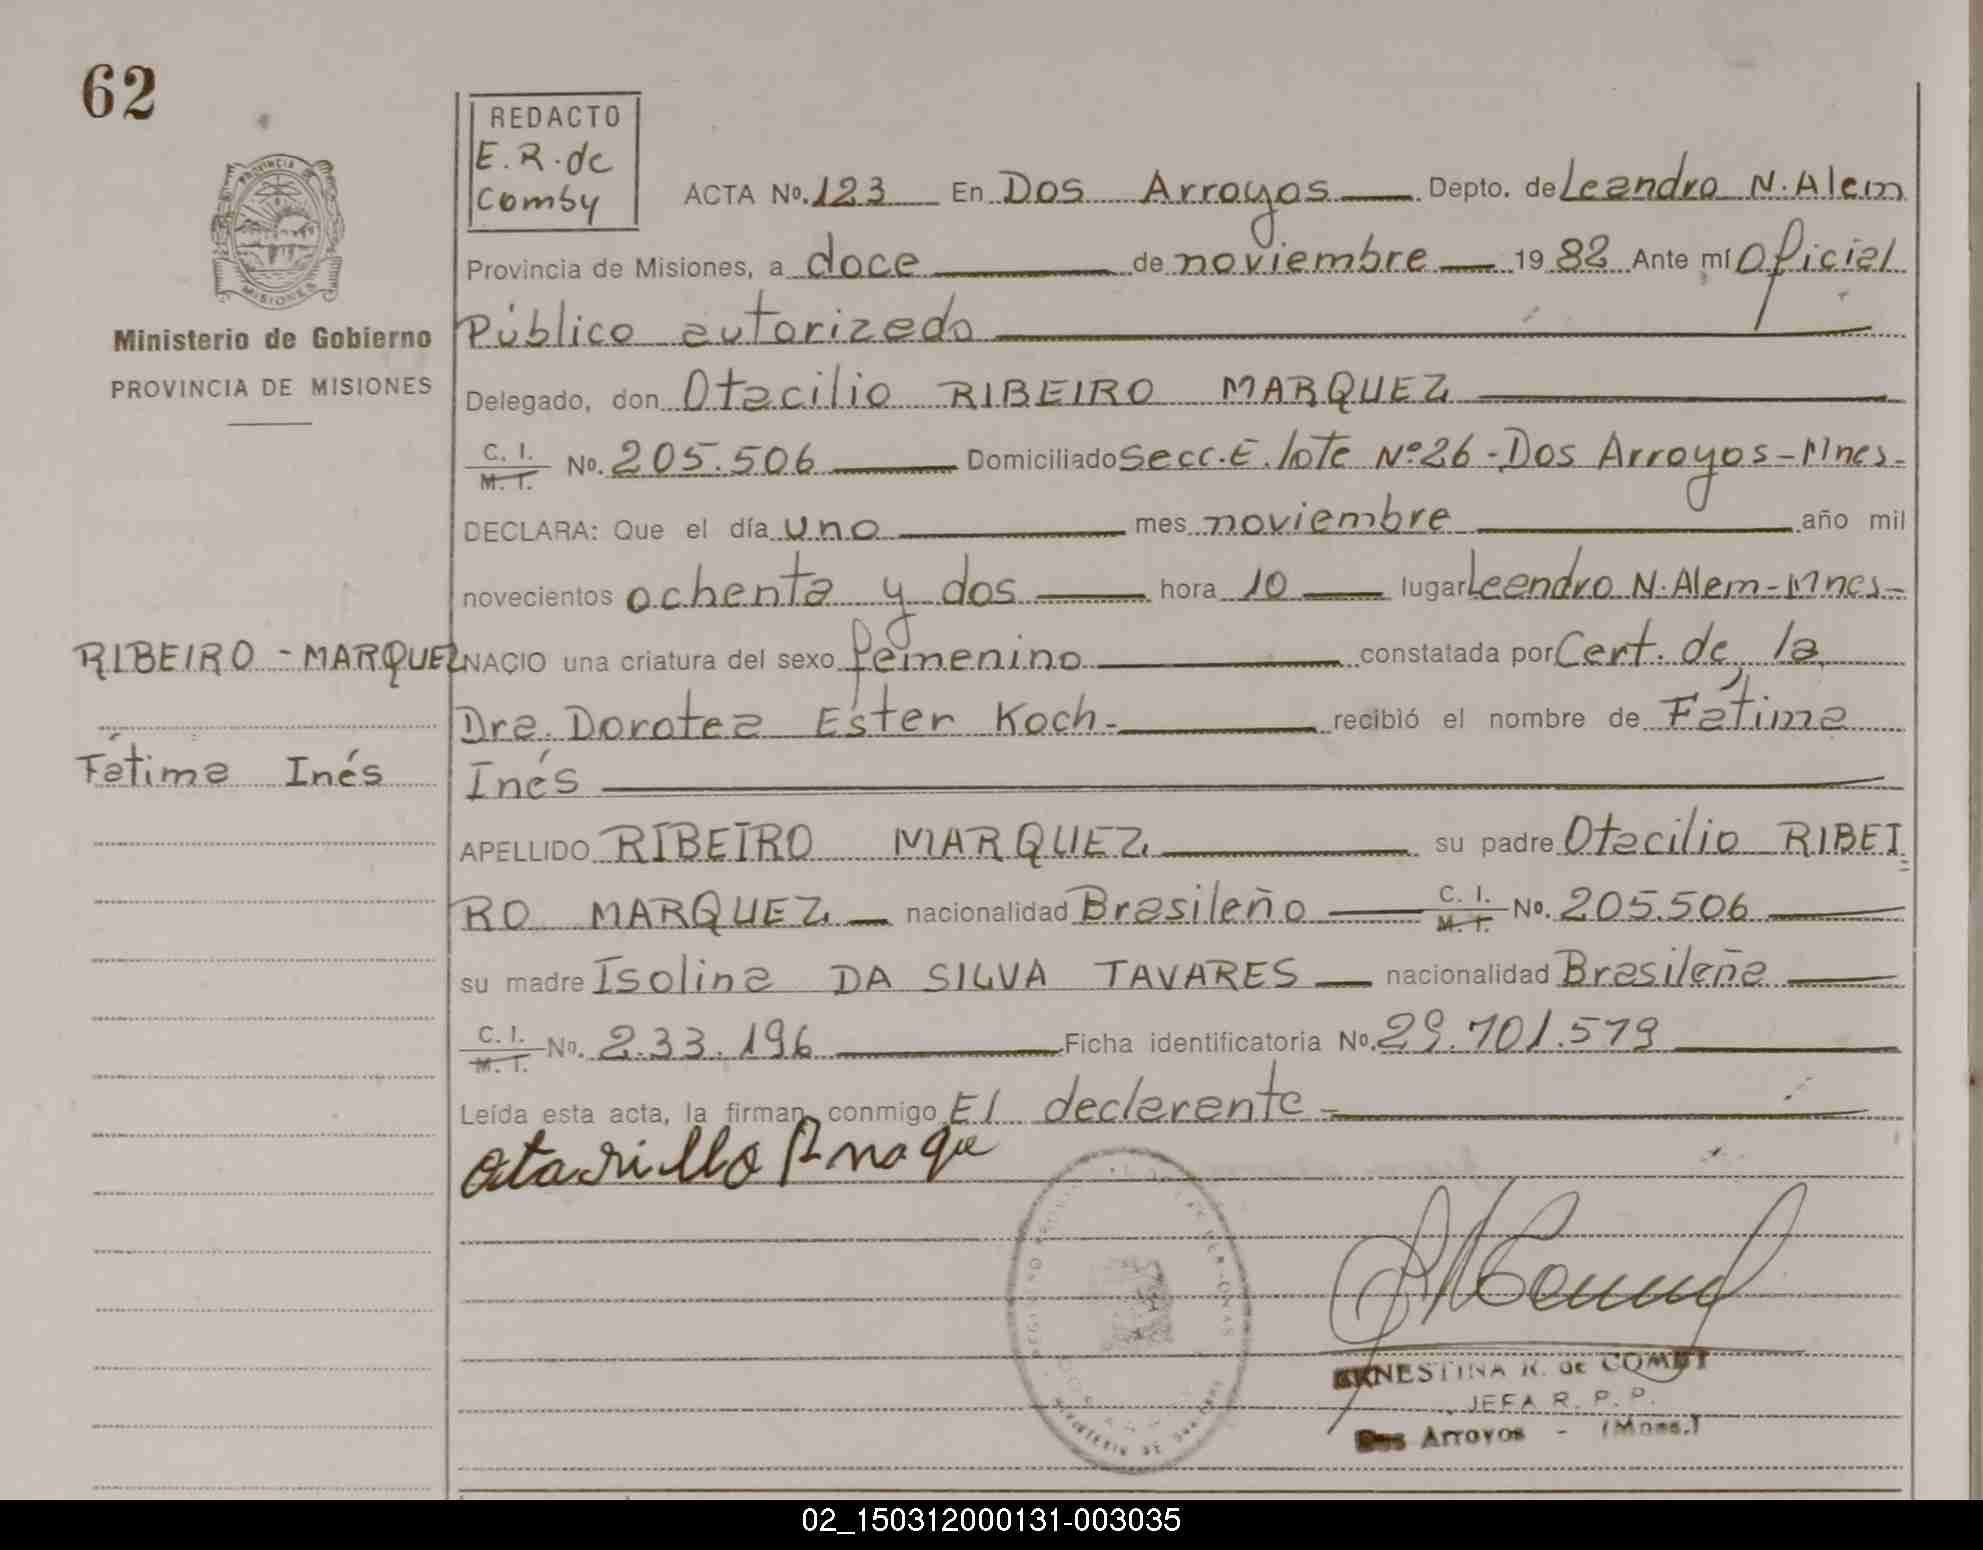 62
REDACTO
E.R. de
Comby
ACTA No. 123 En Dos Arroyos Depto. de Leandro N. Alem
Provincia de Misiones, a doce de noviembre 1982 Ante mí Oficial
Público autorizado
Ministerio de Gobierno
PROVINCIA DE MISIONES
Delegado, don Otacilio RIBEIRO MARQUEZ
C. I. M. T. No. 205.506 Domiciliado Secc. E. lote Nº 26 - Dos Arroyos - Mnes-
DECLARA: Que el día uno mes noviembre año mil
novecientos ochenta y dos hora 10 lugar Leandro N. Alem - Mnes-
RIBEIRO - MARQUEZ NACIO una criatura del sexo femenino constatada por Cert. de la
Dra. Dorotea Ester Koch - recibió el nombre de Fátima
Fátima Inés
Inés
APELLIDO RIBEIRO MARQUEZ su padre Otacilio RIBEI
RO MARQUEZ nacionalidad Brasileño C. I. M. T. No. 205.506
su madre Isolina DA SILVA TAVARES nacionalidad Brasileña
C. I. M. T. No. 233.196 Ficha identificatoria No. 29.701.579
Leída esta acta, la firman conmigo El declarante -
ERNESTINA R. de COMBY
JEFA R. P. P.
Dos Arroyos - (Mnes.)
02_150312000131-003035